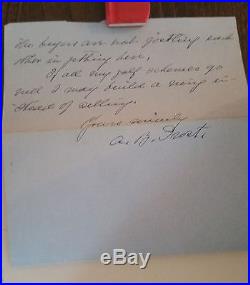 The buyers are not jostling each
other in getting here,
If all my golf schemes go
well I may build a wing in-
stead of selling.
Yours sincerely
A. B. Frost.